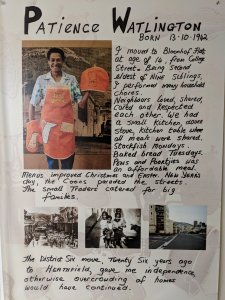 PATIENCE WATLINGTON
BORN 13-10-1942
I moved to Bloemhof Flats
at age of 14, from College
Street - Being Second
eldest of Nine Siblings,
I performed many household
chores.
Neighbours loved, shared,
cared and Respected
each other. We had
a small kitchen, dover
stove, kitchen table where
all meals were shared.
Stockfish Mondays.
Baked bread Tuesdays.
Pens and Poentjies was
an affordable meal.
Menus improved Christmas and Easter. New Years
day, the Coons paraded the streets.
The small Traders catered for big
families.
The District Six move, Twenty Six years ago
to Heathfield, gave me independence,
otherwise overcrowding of homes
would have continued.